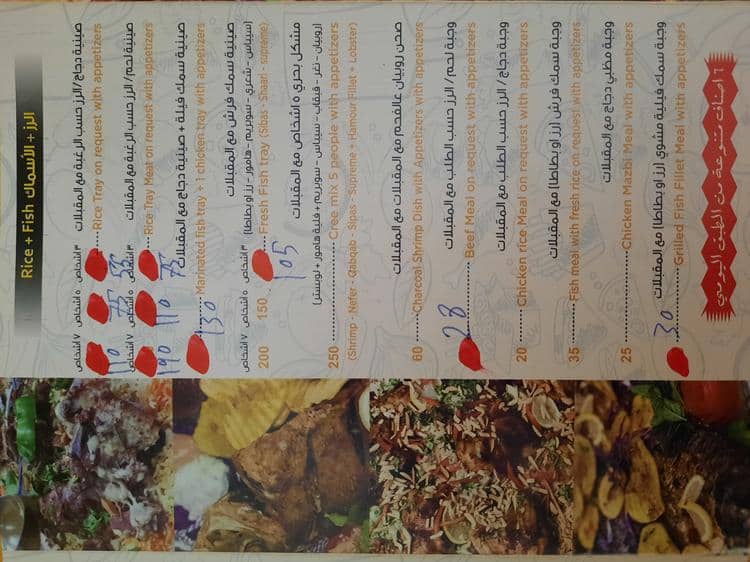 الرز + الأسماك Rice + Fish
صينية دجاج /الرز حسب الرغبة مع المقبلات
٣ اشخاص ٥ اشخاص ٧ اشخاص
Rice Tray on request with appetizers
53 75 110
صينية لحم / الرز حسب الرغبة مع المقبلات
٣ اشخاص ٥ اشخاص ٧ اشخاص
Rice Tray Meal on request with appetizers
75 110 190
صينية سمك فيلة + صينية دجاج مع المقبلات
Marinated fish tray + 1 chicken tray with appetizers
130
صينية سمك فرش مع المقبلات
(سيباس - شعري - سوبريم - هامور - رز او بطاطا)
٣ اشخاص ٥ اشخاص ٧ اشخاص
Fresh Fish tray (Sibas - Shaari - supreme) 150 200
105
مشكل بحري ٥ اشخاص مع المقبلات
(روبيان - نغر - قبقاب - سيباس - سوبريم + فيلة هامور + لوبستر)
Cree mix 5 people with appetizers 250
(Shrimp - Nefer - Qabqab - Sipas - Supreme + Hamour Fillet + Lobster)
صحن روبيان عالفحم مع المقبلات مع المقبلات
Charcoal Shrimp Dish with Appetizers with appetizers 60
وجبة لحم / الرز حسب الطلب مع المقبلات
Beef Meal on request with appetizers
28
وجبة دجاج / الرز حسب الطلب مع المقبلات
Chicken rice Meal on request with appetizers 20
وجبة سمك فرش (رز او بطاطا) مع المقبلات
Fish meal with fresh rice on request with appetizers 35
وجبة مظبي دجاج مع المقبلات
Chicken Mazbi Meal with appetizers 25
وجبة سمك فيلية مشوي (رز او بطاطا) مع المقبلات
Grilled Fish Fillet Meal with appetizers
30
٦ اصناف متنوعة من الطبق اليومي